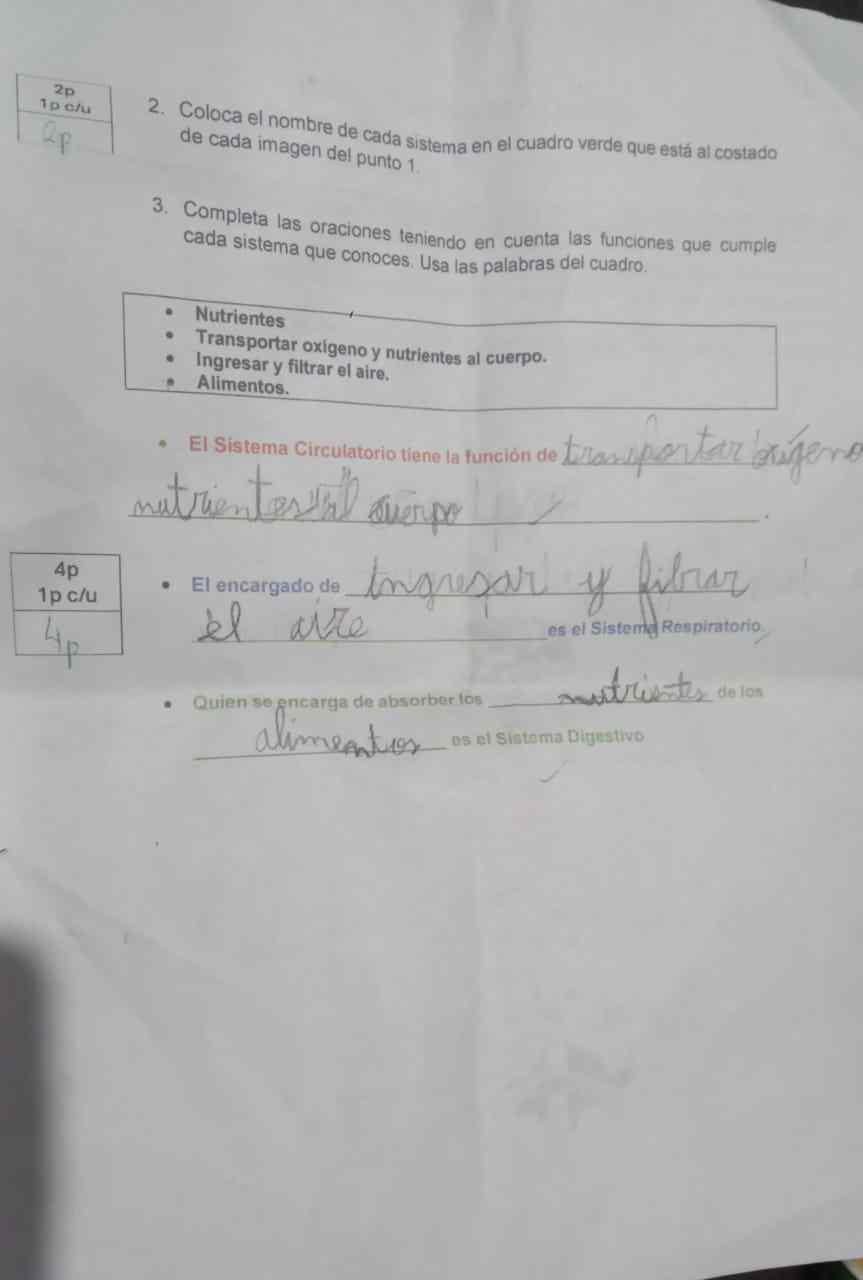 2p
1p c/u
2p
2. Coloca el nombre de cada sistema en el cuadro verde que está al costado
de cada imagen del punto 1.
3. Completa las oraciones teniendo en cuenta las funciones que cumple
cada sistema que conoces. Usa las palabras del cuadro.
• Nutrientes
• Transportar oxígeno y nutrientes al cuerpo.
• Ingresar y filtrar el aire.
• Alimentos.
• El Sistema Circulatorio tiene la función de transportar oxígeno
nutrientes al cuerpo.
4p
1p c/u
4p
• El encargado de Ingresar y filtrar
el aire es el Sistema Respiratorio
• Quien se encarga de absorber los nutrientes de los
alimentos es el Sistema Digestivo